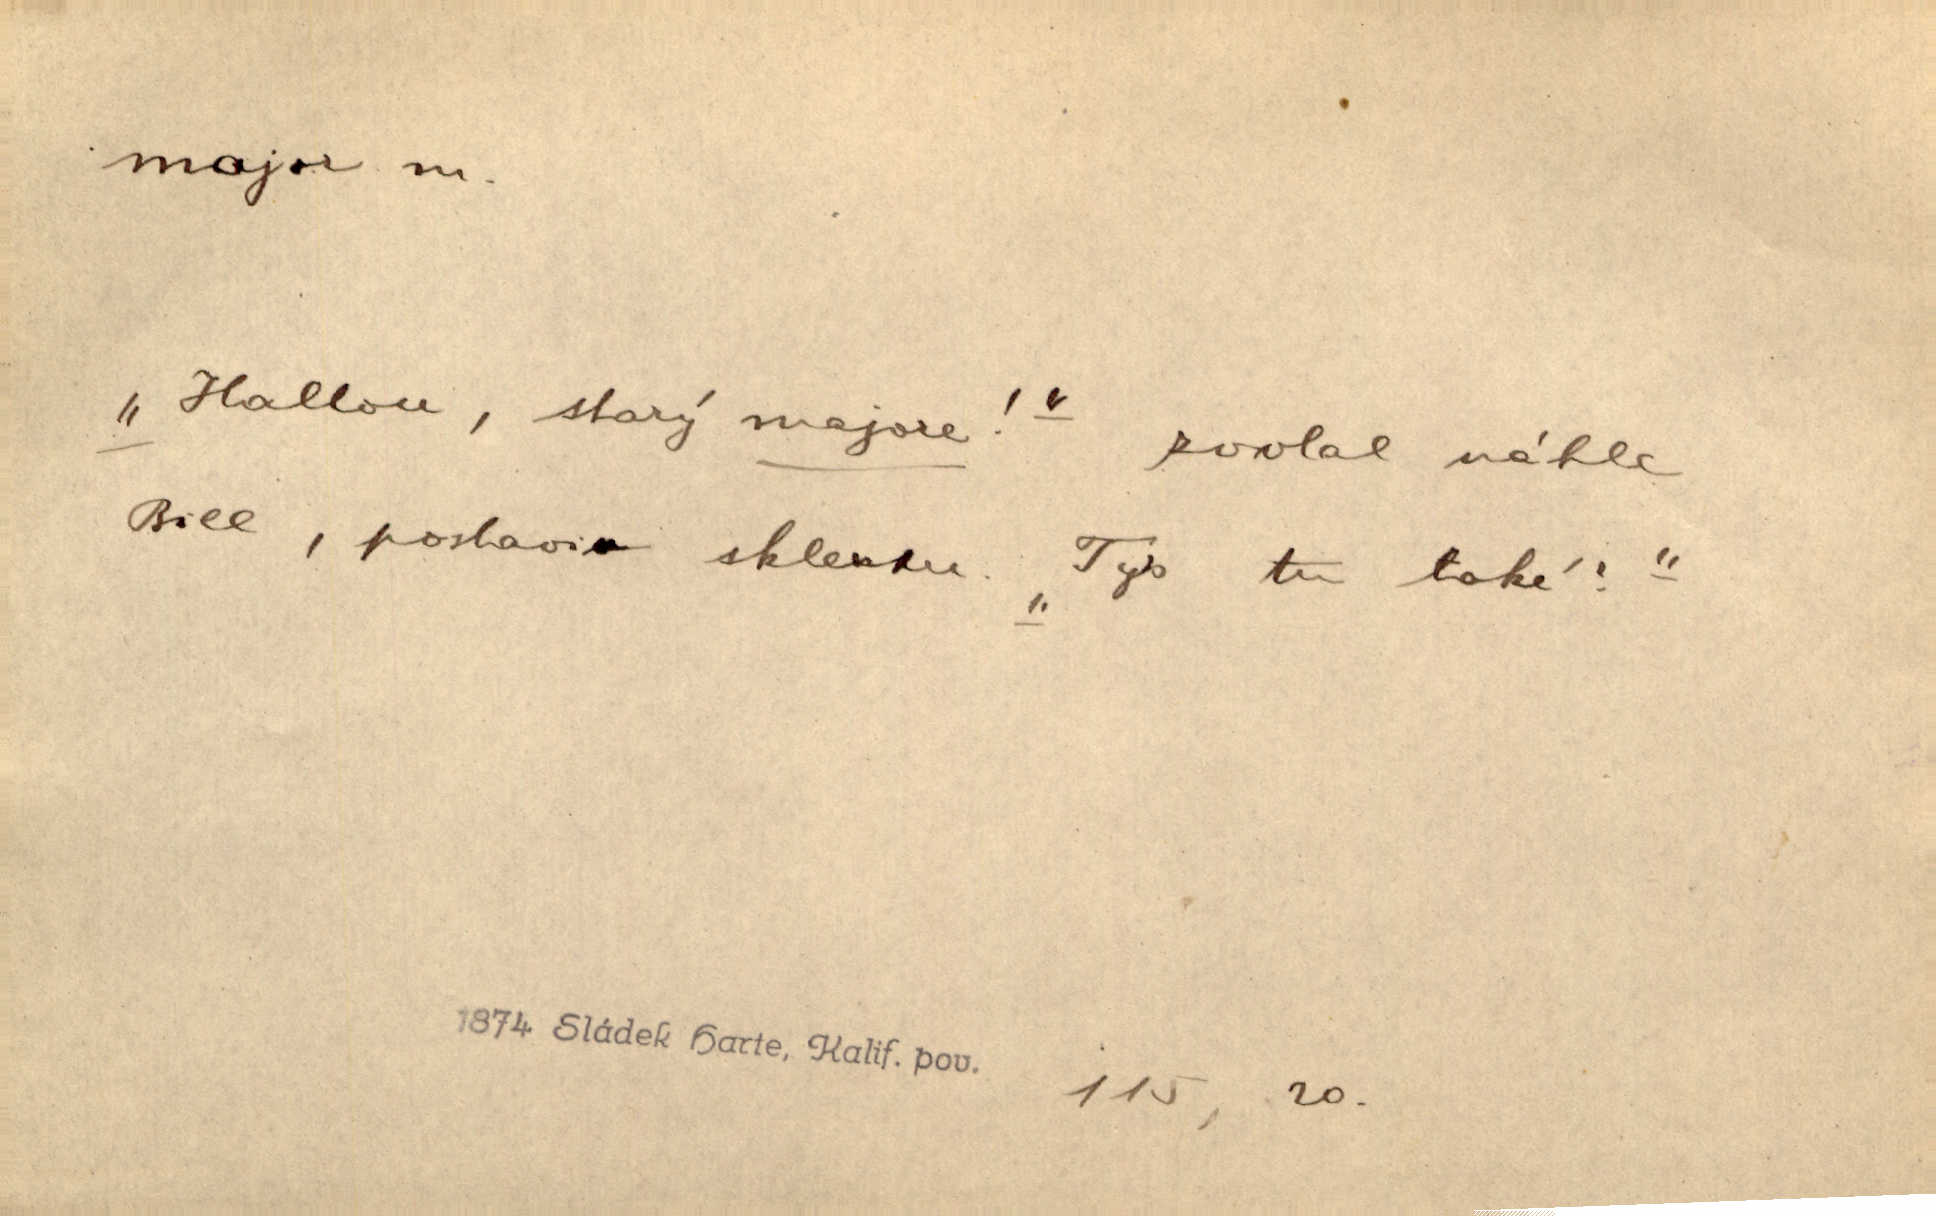 major m.
„Hallou, starý majore!" zvolal náhle
Bill, postaviv sklenku. „Tys tu také?"
1874 Sládek Harte, Kalif. pov.
115, 20.